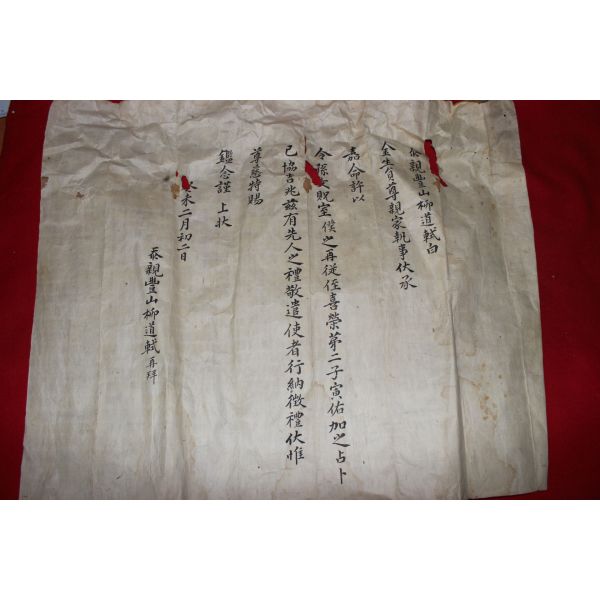 忝親豊山柳道軾白
金生員尊親家執事伏承
嘉命許以
令孫女貺室僕之再從侄喜榮第二子寅佑加之占卜
已協吉兆茲有先人之禮敬遣使者行納徵禮伏惟
尊慈特賜
鑑念謹 上狀
未二月初二日
忝親豊山柳道軾再拜